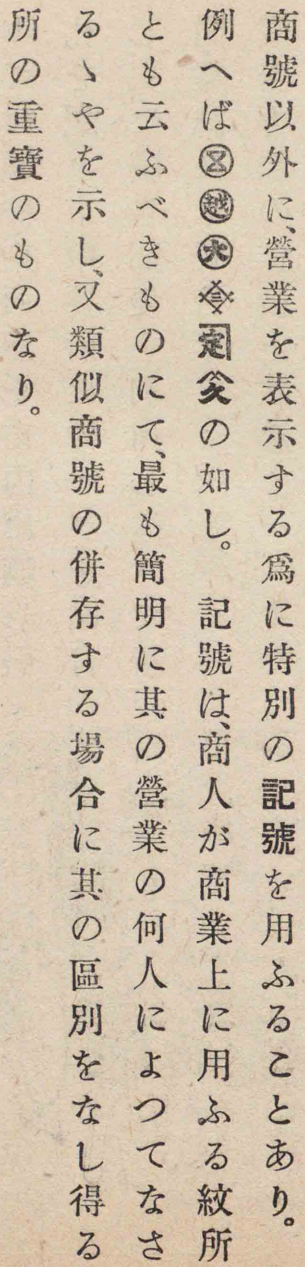 商號以外に、營業を表示する爲に特別の記號を用ふることあり。
例へば㊣の如し。　記號は、商人が商業上に用ふる紋所
とも云ふべきものにて、最も簡明に其の營業の何人によつてなさ
るゝやを示し、又類似商號の併存する場合に其の區別をなし得る
所の重寶のものなり。